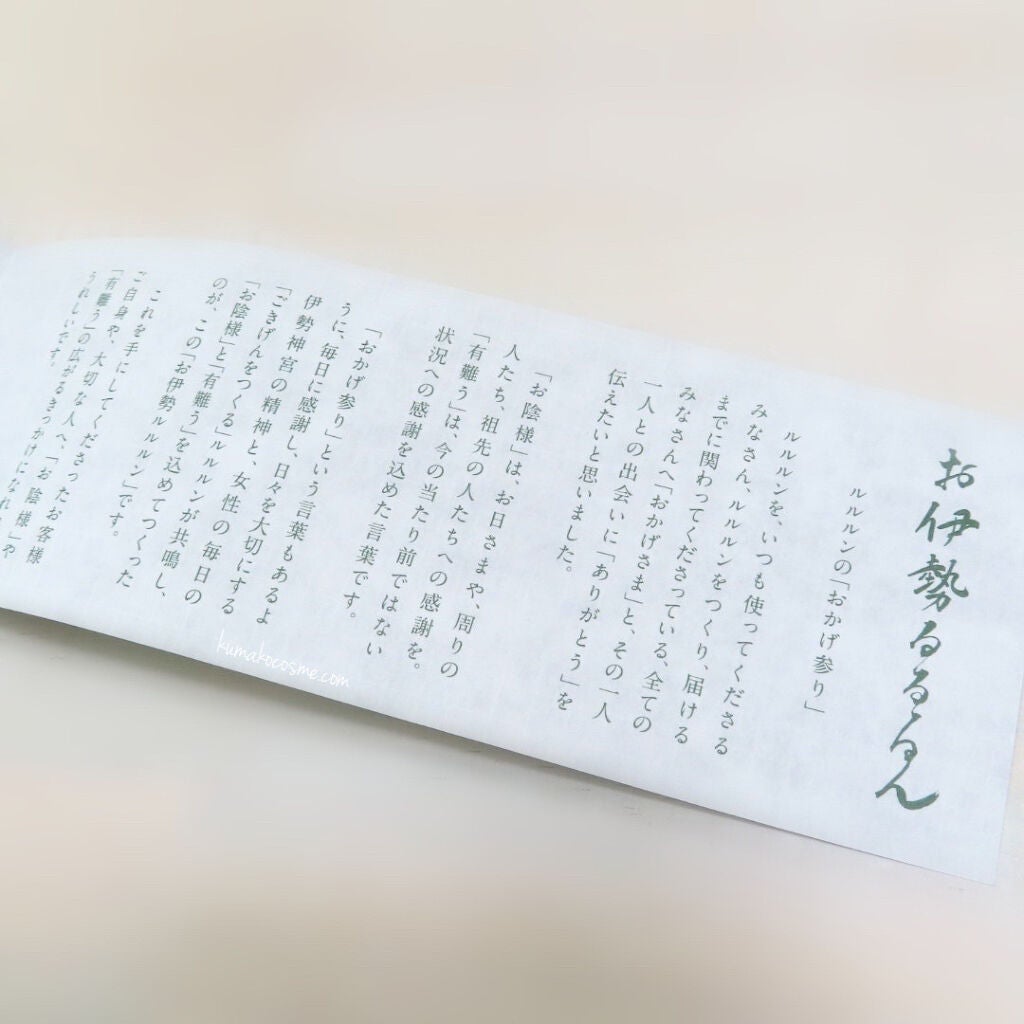 お伊勢るるるん
ルルルンの「おかげ参り」
ルルルンを、いつも使ってくださる
みなさん、ルルルンをつくり、届ける
までに関わってくださっている、全ての
みなさんへ「おかげさま」と、その一人
一人との出会いに「ありがとう」を
伝えたいと思いました。
「お陰様」は、お日さまや、周りの
人たち、祖先の人たちへの感謝を。
「有難う」は、今の当たり前ではない
状況への感謝を込めた言葉です。
「おかげ参り」という言葉もあるよ
うに、毎日に感謝し、日々を大切にする
伊勢神宮の精神と、女性の毎日の
「ごきげんをつくる」ルルルンが共鳴し、
「お陰様」と「有難う」を込めてつくった
のが、この「お伊勢ルルルン」です。
これを手にしてくださったお客様
ご自身や、大切な人へ、「お陰様」や
「有難う」の広がるきっかけになれば
うれしいです。
kumakocosme.com